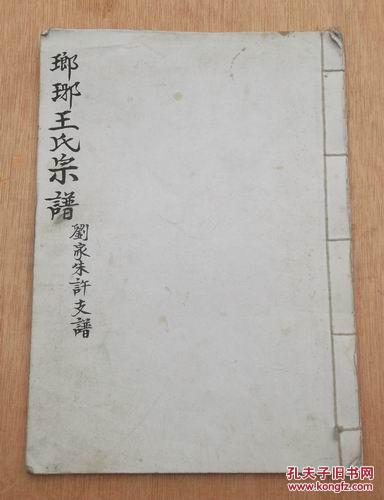 瑯琊王氏宗譜
劉家朱許支譜
孔夫子旧书网
www.kongfz.com